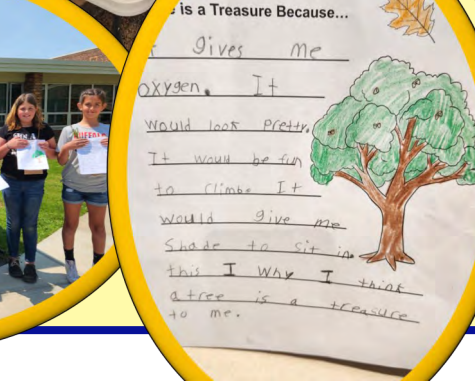 is a Treasure Because...
gives me
oxygen. It
would look pretty.
It would be fun
to climbe It
would give me
Shade to sit in.
this I Why I think
a tree is a treasure
to me.